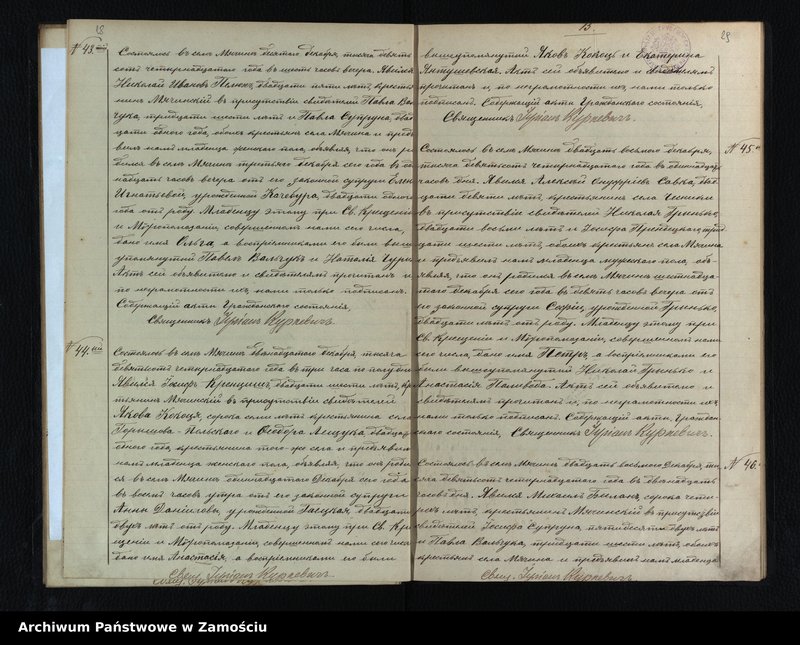 28
№ 43.
Состоялось въ селѣ Мячинѣ десятаго декабря, тысяча девять
сотъ четырнадцатаго года въ шесть часовъ вечера. Явился
Николай Ивановъ двадцати пяти лѣтъ, кресть
янинъ Мячинскій въ присутствіи свидѣтелей Павла Валь
чука, тридцати шести лѣтъ и Павла Супруна, двад
цати одного года, обоихъ крестьянъ села Мячина и предъ
явилъ намъ младенца женскаго пола, объявляя, что онъ ро
дился въ селѣ Мячинѣ третьяго декабря сего года въ
надцать часовъ вечера отъ его законной супруги Елены
Игнатьевой, урожденной Качебура, двадцати одного
года отъ роду. Младенцу этому при Св. Крещеніи
и Мѵропомазаніи, совершенномъ нами сего числа,
дано имя Ольга, а воспріемниками его были выше
упомянутый Павелъ Вальчукъ и Наталія
Актъ сей объявителю и свидѣтелямъ прочитанъ и
по неграмотности ихъ, нами только подписанъ.
Содержащій акты Гражданскаго состоянія,
Священникъ Куркевичъ.
№ 44.
Состоялось въ селѣ Мячинѣ двѣнадцатаго декабря, тысяча
девятьсотъ четырнадцатаго года въ три часа по полудни
Явился Іосифъ двадцати шести лѣтъ, кре
стьянинъ Мячинскій въ присутствіи свидѣтелей
Якова Кокоця, сорока семи лѣтъ крестьянина села
Горышова-Польскаго и Ѳеодора Лещука, двадцати
одного года, крестьянина того-же села и предъявилъ
намъ младенца женскаго пола, объявляя, что онъ роди
лся въ селѣ Мячинѣ одиннадцатаго Декабря сего года
въ восемь часовъ утра отъ его законной супруги
Анны Даниловы, урожденной двадцати
двухъ лѣтъ отъ роду. Младенцу этому при Св. Кре
щеніи и Мѵропомазаніи, совершенномъ нами сего числа
дано имя Анастасія, а воспріемниками его были
Свящ. Куркевичъ
15.
29
вышеупомянутый Яковъ Кокоць и Екатерина
Актъ сей объявителю и свидѣтелямъ
прочитанъ и, по неграмотности ихъ, нами только
подписанъ. Содержащій акты Гражданскаго состоянія,
Священникъ Куркевичъ.
№ 45.
Состоялось въ селѣ Мячинѣ двадцать восьмого декабря,
тысяча девятьсотъ четырнадцатаго года въ двѣнадцать
часовъ дня. Явился Алексѣй Савка, два
дцати девяти лѣтъ, крестьянинъ села
въ присутствіи свидѣтелей Николая Гринько,
двадцати восьми лѣтъ и Іосифа трид
цати шести лѣтъ, обоихъ крестьянъ села Мячина
и предъявилъ намъ младенца мужескаго пола, объ
являя, что онъ родился въ селѣ Мячинѣ шестнадца
таго декабря сего года въ девять часовъ вечера отъ
его законной супруги Софіи, урожденной Гринько,
двадцати лѣтъ отъ роду. Младенцу этому при
Св. Крещеніи и Мѵропомазаніи, совершенномъ нами
сего числа, дано имя Петръ, а воспріемниками его
были вышеупомянутый Николай Гринько и
Анастасія Актъ сей объявителю и
свидѣтелямъ прочитанъ и, по неграмотности ихъ,
нами только подписанъ. Содержащій акты Граждан
скаго состоянія, Священникъ Куркевичъ.
№ 46.
Состоялось въ селѣ Мячинѣ двадцать восьмого Декабря, ты
сяча девятьсотъ четырнадцатаго года въ двѣнадцать
часовъ дня. Явился Михаилъ сорока четы
рехъ лѣтъ, крестьянинъ Мячинскій въ присутствіи
свидѣтелей Іосифа Супруна, пятидесяти двухъ лѣтъ
и Павла Вальчука, тридцати шести лѣтъ, обоихъ
крестьянъ села Мячина и предъявилъ намъ младенца
Свящ. Куркевичъ
Archiwum Państwowe w Zamościu